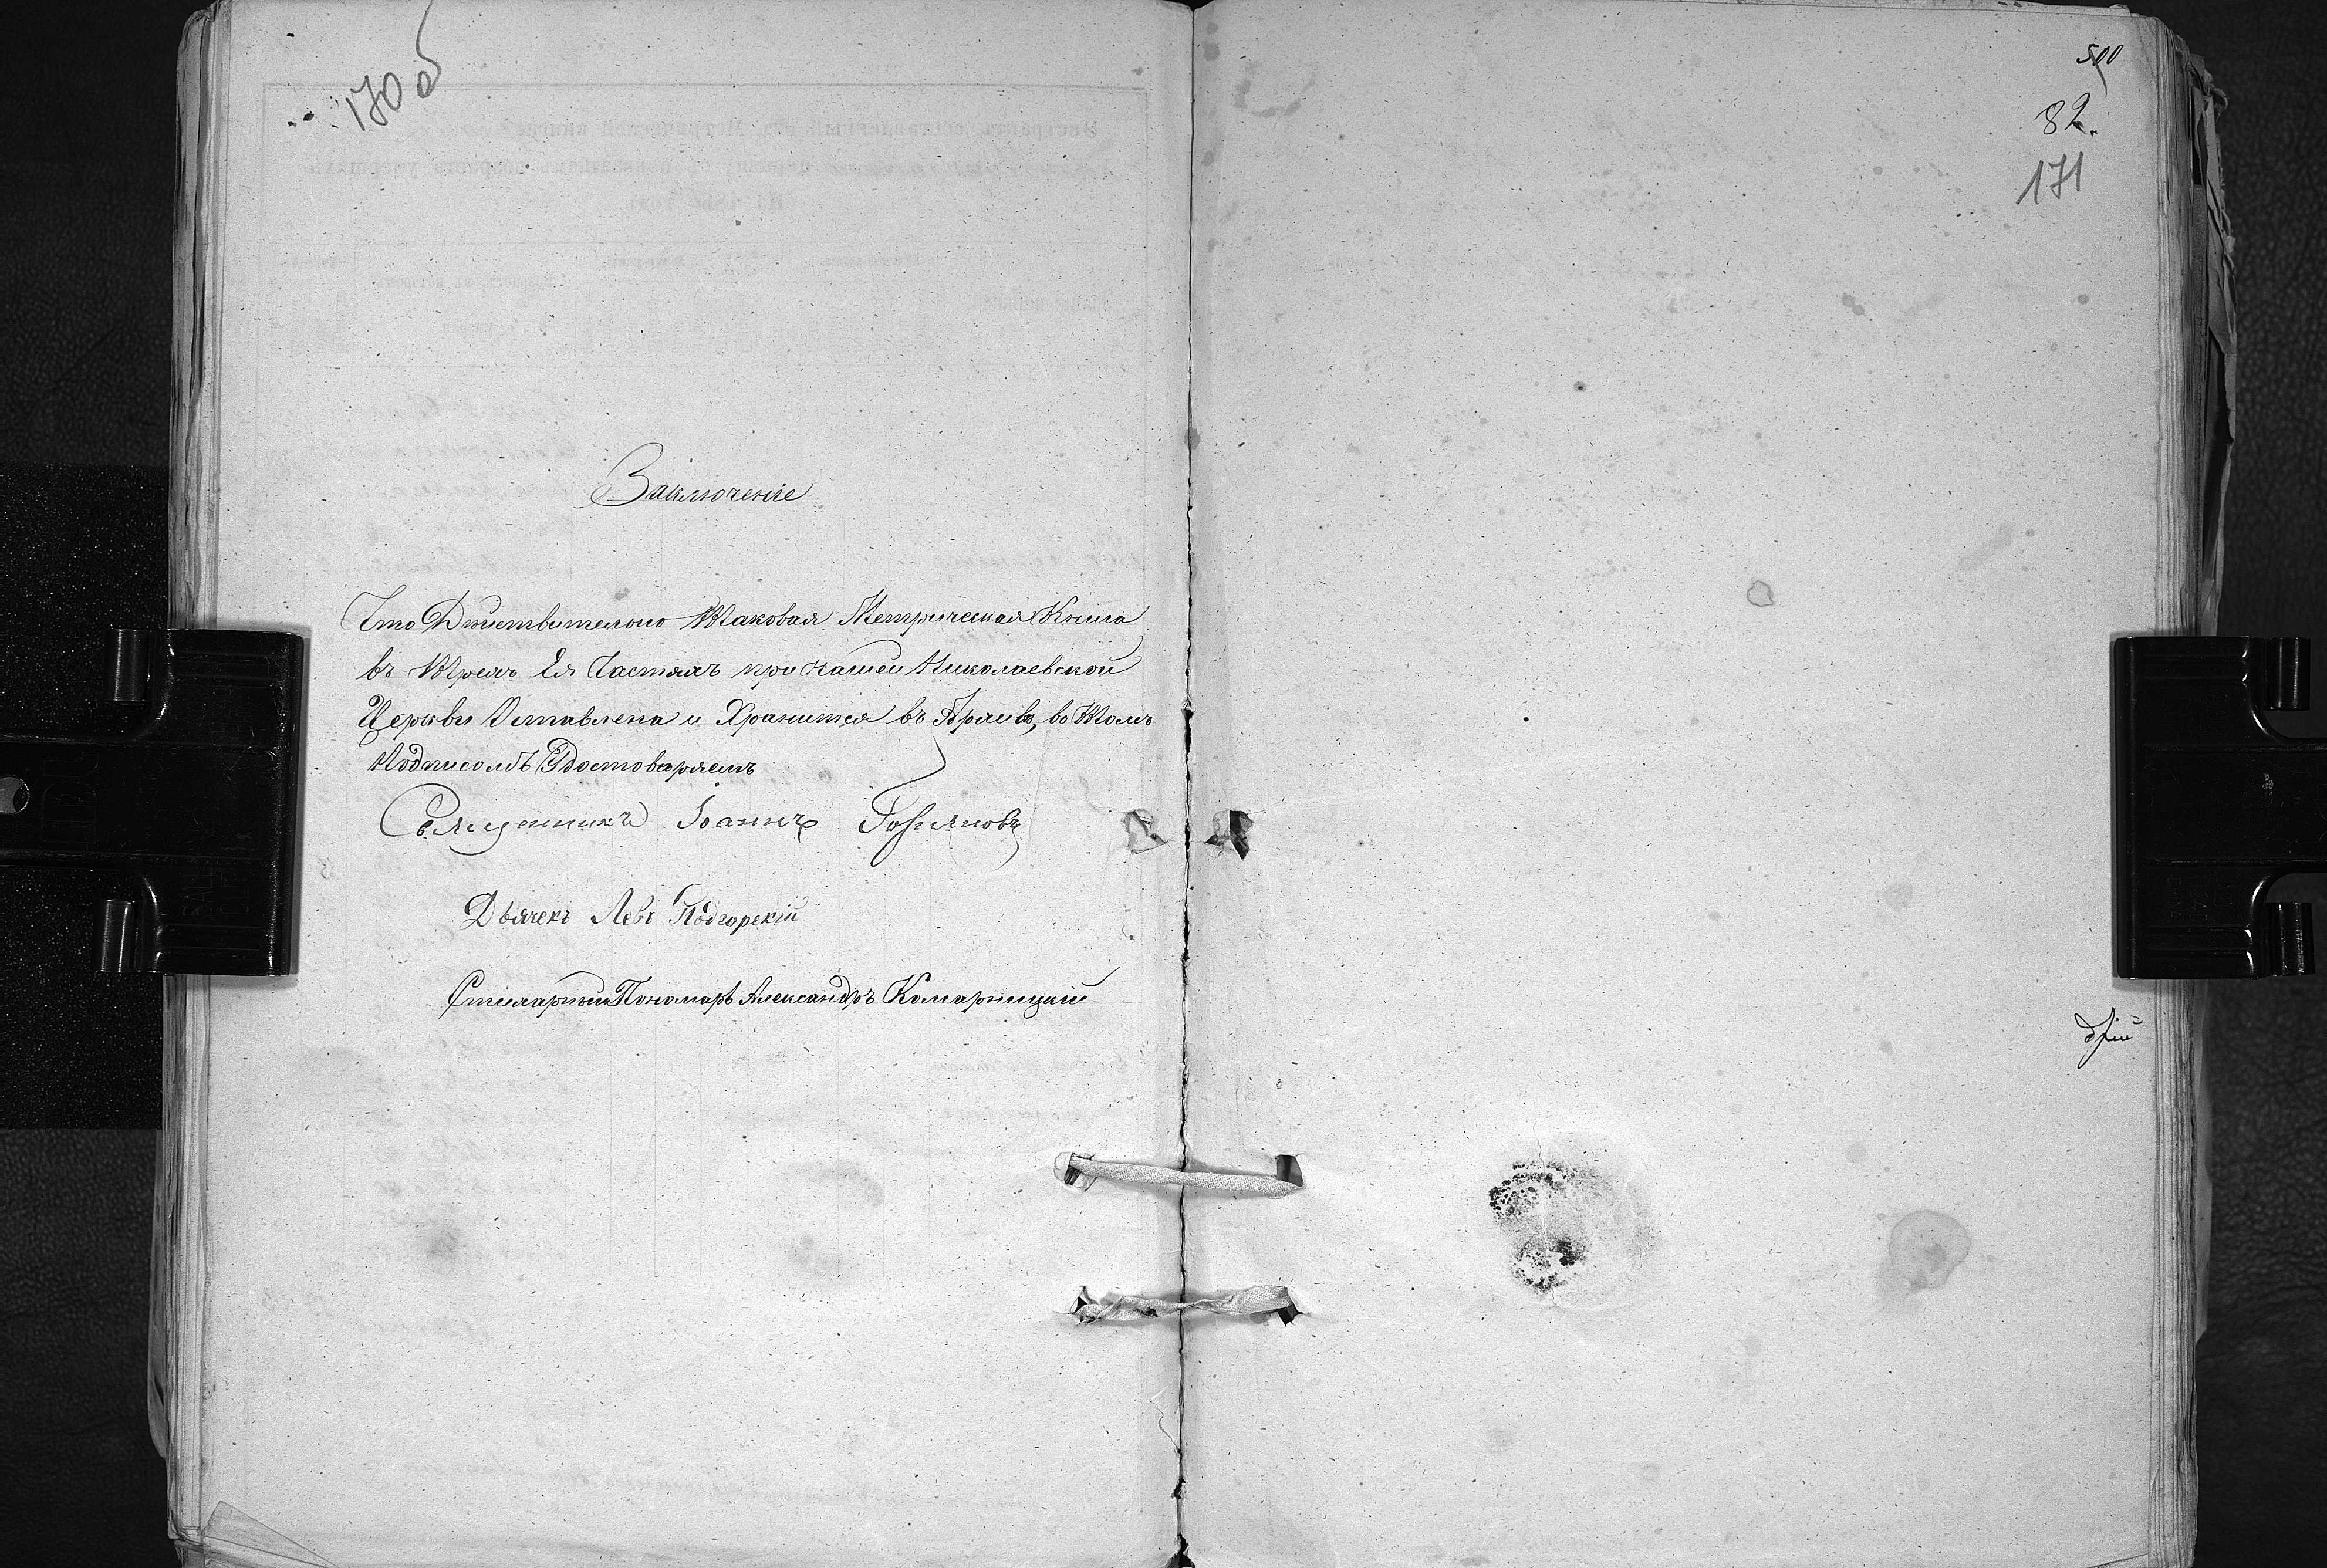 170 об
Заключенiе
Что Дѣиствително Таковая Метрическая Книга
въ Трехъ Ея Частяхъ при нашей Николаевской
Церкви Оставлена и Хранится въ Архивѣ, во Томъ
Подписомъ Удостоверяемъ
Священникъ Iоаннъ
Дьячекъ Левъ Подгорскiй
Пономарь Александръ Комарницкiй
500
82.
171